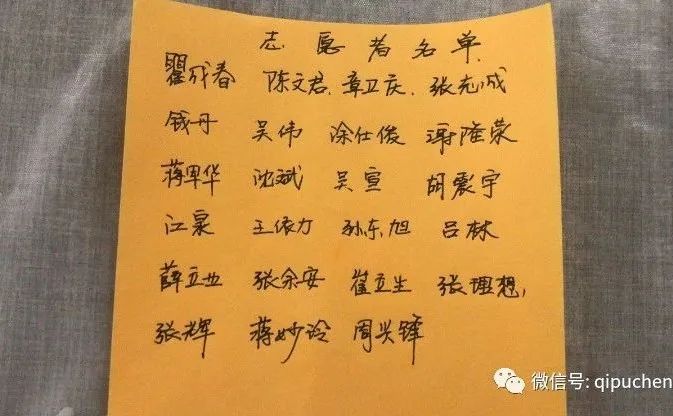 志愿者名单
瞿成春 陈文君 章卫庆 张志成
钱丹 吴伟 涂仕俊 谢隆荣
蒋军华 沈斌 吴宣 胡震宇
江泉 王依力 孙东旭 吕林
薛立业 张余安 崔立生 张理想
张辉 蒋妙玲 周兴锋
微信号: qipuchen